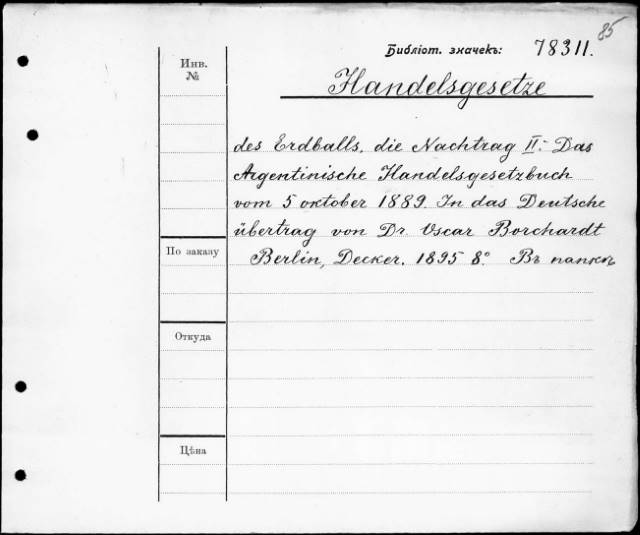 85
Библіот. значекъ: 78311.
Инв.
№
Handelsgesetze
des Erdballs, die Nachtrag II: Das
Argentinische Handelsgesetzbuch
vom 5 oktober 1889. In das Deutsche
übertrag von Dr. Oscar Borchardt
По заказу
Berlin, Decker. 1895 8º Въ папкѣ
Откуда
Цѣна